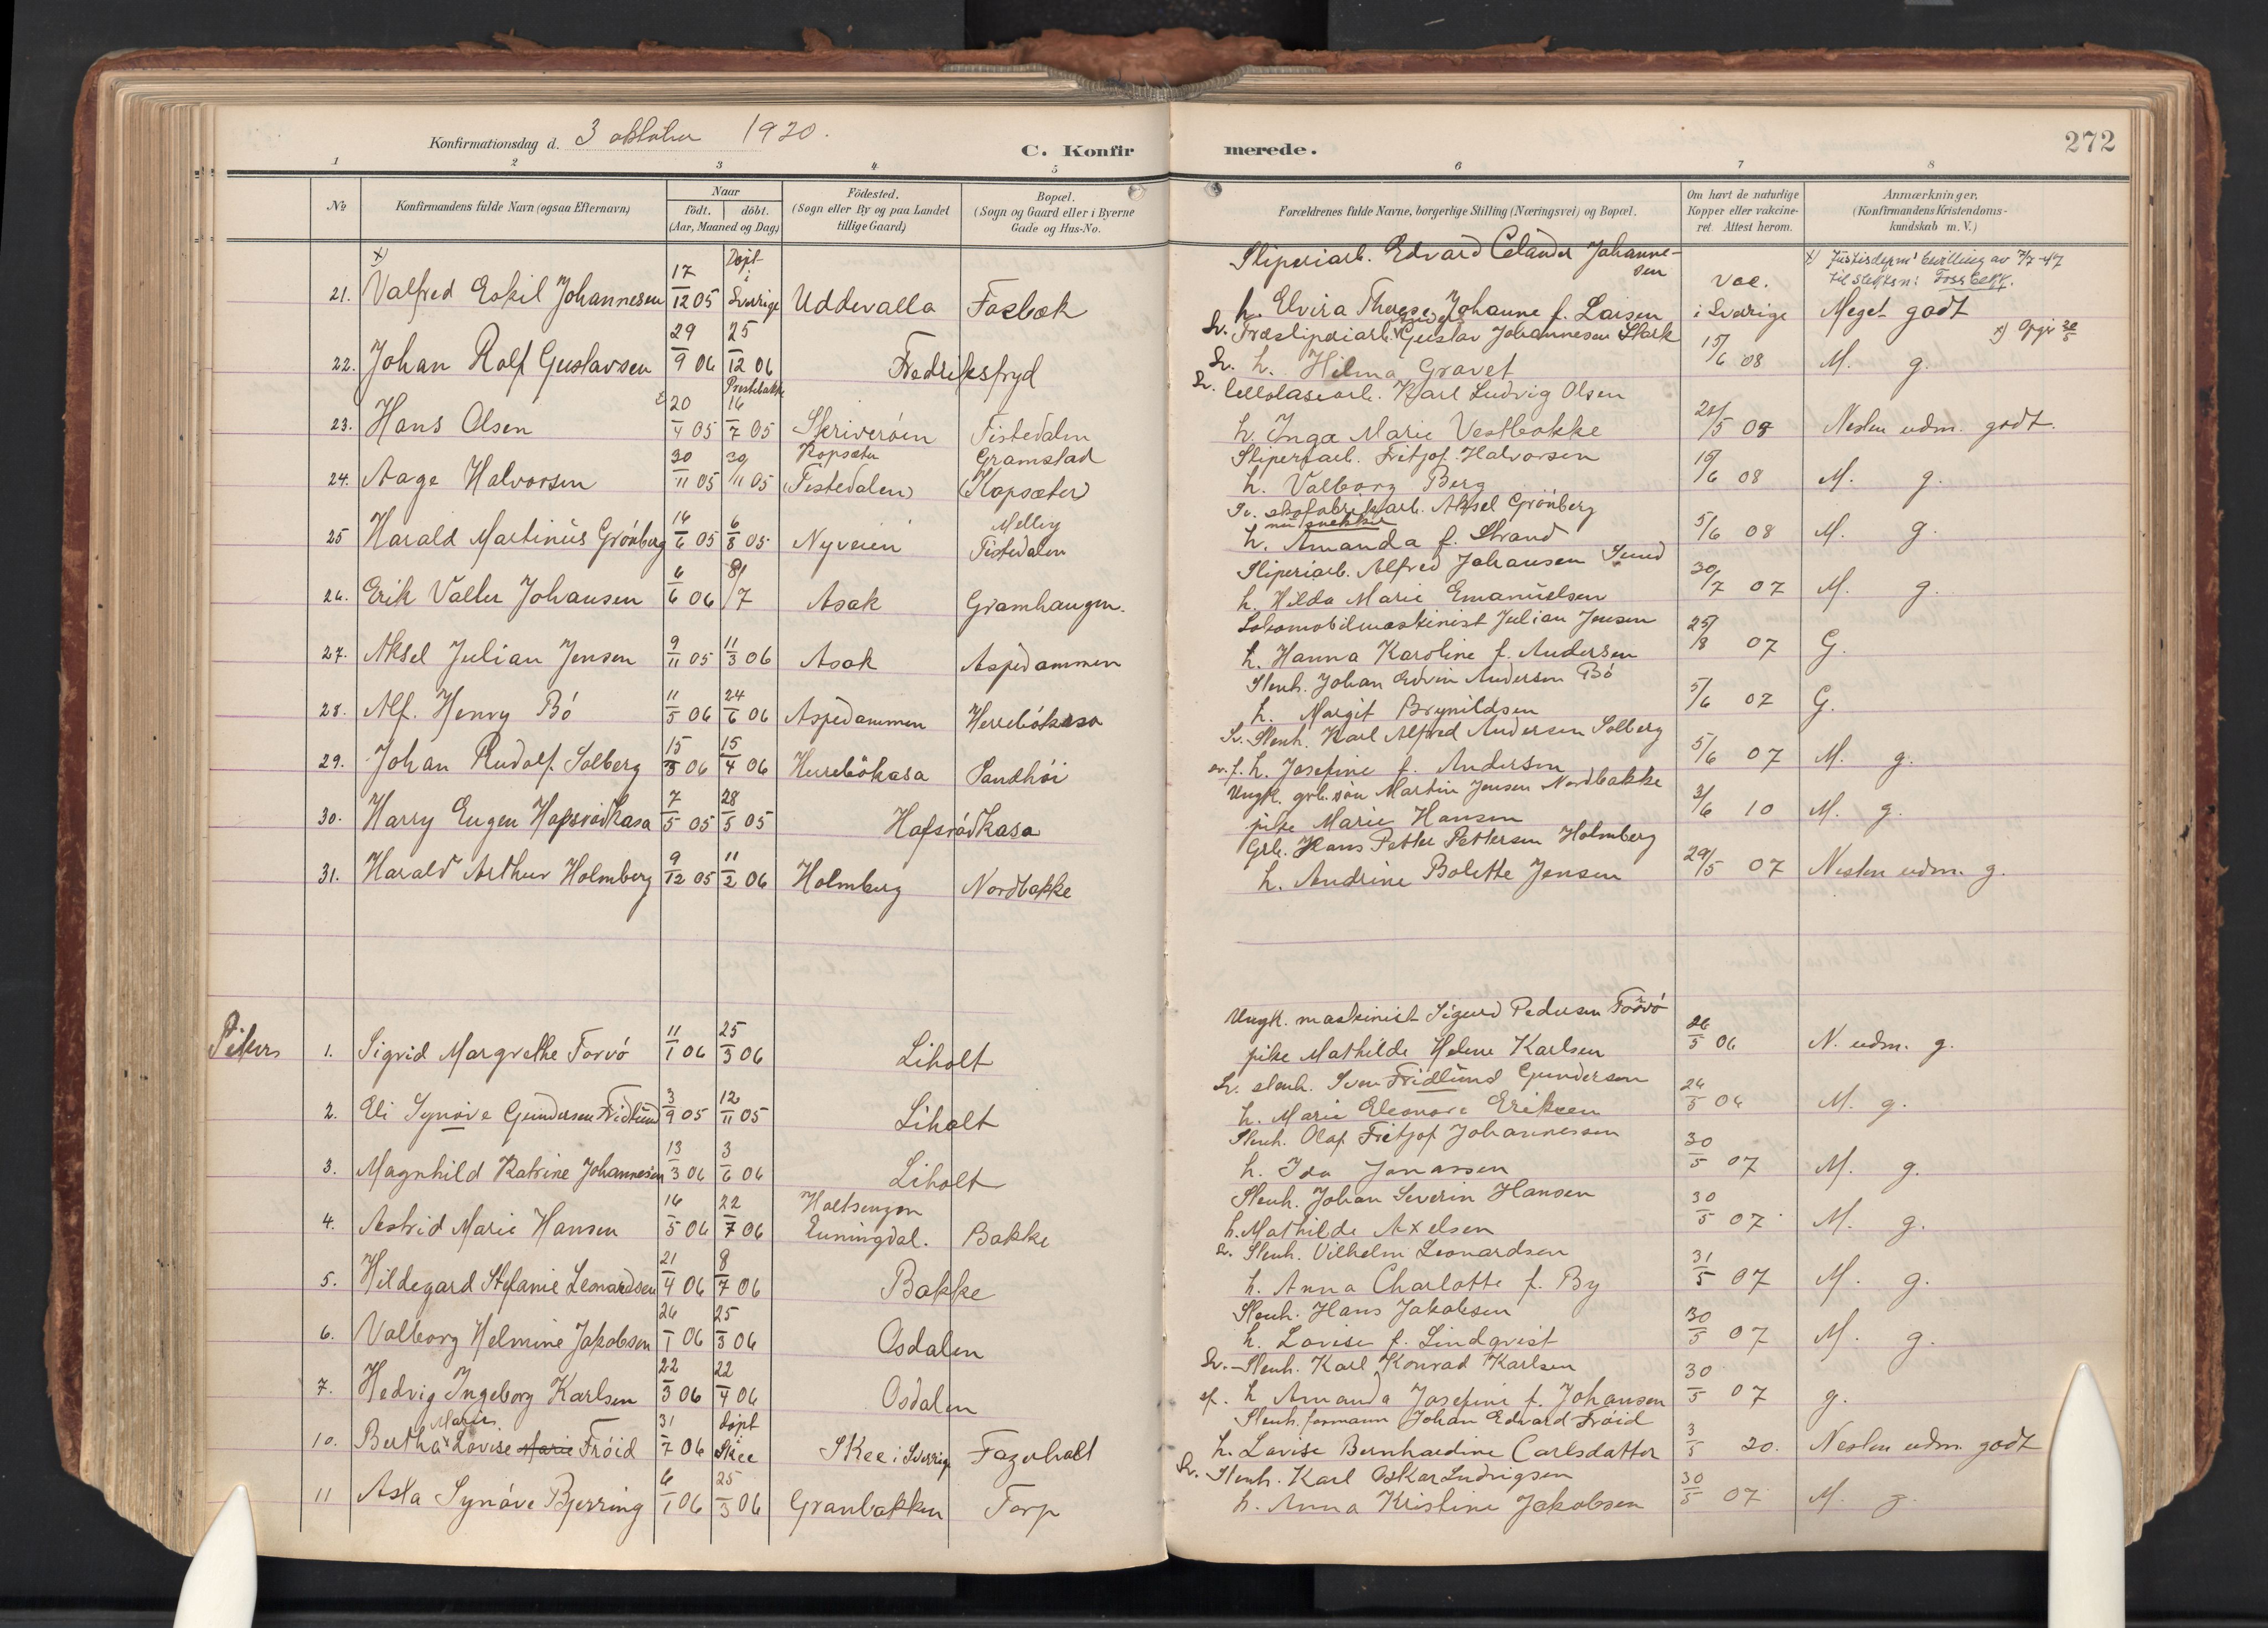 Konfirmationsdag d. 3 oktober 1920.
C. Konfir
merede.
272
1 2 3 4 5 6 7 8
No
Konfirmandens fulde Navn (ogsaa Efternavn)
Naar
födt. döbt.
(Aar, Maaned og Dag)
Födested.
(Sogn eller By og paa Landet
tillige Gaard)
Bopæl.
(Sogn og Gaard eller i Byerne
Gade og Hus-No.
Forældrenes fulde Navne, borgerlige Stilling (Næringsvei) og Bopæl.
Om havt de naturlige
Kopper eller vakcine-
ret. Attest herom.
Anmærkninger.
(Konfirmandens Kristendoms-
kundskab m. V.)
x)
21. Valfred Eskil Johannesen 17/12 05 Døpt i Sverrige Uddevalla Fosbæk
Sliperiarb. Edvard Celander Johanne-
sen
h. Elvira Therese Johanne f. Larsen
Vac. i Sverige
x) Justisdepm' bevilling av 7/7-47
til slektsn: Fossbekk.
Meget godt
22. Johan Rolf Gustavsen 29/9 06 25/12 06 Fredriksfryd
Sv. Træsliperiarb. Gustav Johannesen Stark
Sv. h. Hilma Gravet
15/6 08 M. g.
x) Opgir
23. Hans Olsen 20/4 05 Prestebakke 16/7 05 Skriverøen Tistedalen
Sv. Cellolasearb. Karl Ludvig Olsen
h. Inga Marie Vestbakke
21/5 08 Nesten udm. godt.
24. Aage Halvorsen 30/11 05 30/11 05 Kopsæter (Tistedalen) Gramstad (Kopsæter)
Sliperiarb. Fritjof Halvorsen
h. Valborg Berg
19/6 08 M. g.
25 Harald Martinius Grönberg 16/6 05 6/8 05 Nyveien Melleg Tistedalen
Sv. skofabrikarb. Aksel Grönberg
nu snekker
h. Amanda f. Strand
5/6 08 M. g.
26. Erik Valler Johansen 6/6 06 8/7 Asak Gramhaugen.
Sliperiarb. Alfred Johansen Sund
h. Hilda Marie Emanuelsen
30/7 07 M. g.
27. Aksel Julian Jensen 9/11 05 11/3 06 Asak Aspedammen
Lokomobilmaskinist Julian Jensen
h. Hanna Karoline f. Andersen
25/8 07 G.
28. Alf. Henry Bö 11/5 06 24/6 06 Aspedammen Herrebökasa
Stenh. Johan Edvin Andersen Bö
h. Margit Brynildsen
5/6 07 G.
29. Johan Rudolf Solberg 15/3 06 15/4 06 Herrebökasa Sandhöi
Sv. Stenh. Karl Alfred Andersen Solberg
sv. f. h. Josefine f. Andersen
5/6 07 M. g.
30. Harry Eugen Hafsrödkasa 7/5 05 28/5 05 Hafsrödkasa
Ungk. grb. søn Martin Jensen Nordbakke
pike Marie Hansen
3/6 10 M. g.
31. Harald Arthur Holmberg 9/12 05 11/2 06 Holmberg Nordbakke
Grb. Hans Petter Pettersen Holmberg
h. Andrine Bolette Jensen
29/5 07 Nesten udm. g.
Piker
1. Sigrid Margrethe Torvö 11/1 06 25/3 06 Liholt
Ungk. maskinist Sigurd Pedersen Torvö
pike Mathilde Helene Karlsen
26/5 06 N. udm. g.
2. Eli Synöve Gundersen Fridlund 3/9 05 12/11 05 Liholt
Sv. stenh. Sven Fridlund Gundersen
h. Marie Eleonore Eriksen
24/5 06 M. g.
3. Magnhild Katrine Johannesen 13/3 06 3/6 06 Liholt
Stenh. Olaf Fritjof Johannessen
h. Ida Jonassen
30/5 07 M. g.
4. Astrid Marie Hansen 16/5 06 22/7 06 Holtsengen Enningdal. Bakke
Stenh. Johan Severin Hansen
h. Mathilde Axelsen
30/5 07 M. g.
5. Hildegard Stefanie Leonardsen 21/4 06 8/7 06 Bakke
Sv. Stenh. Vilhelm Leonardsen
h. Anna Charlotte f. By
31/5 07 M. g.
6. Valborg Helmine Jakobsen 26/1 06 25/3 06 Osdalen
Stenh. Hans Jakobsen
h. Lovise f. Lindqvist
30/5 07 M. g.
7. Hedvig Ingeborg Karlsen 22/3 06 22/4 06 Osdalen
Sv. Stenh. Karl Konrad Karlsen
sf. h Amanda Josefine f. Johansen
30/5 07 g.
Marie
10. Bertha Lovise Marie Fröid 31/7 06 døpt i Skee Skee i Sverrige Fagerholt
Stenh. formann Johan Edvard Fröid
h. Lovise Bernhardine Carlsdatter
3/5 20. Nesten udm. godt
11 Asta Synöve Bjerring 6/1 06 25/3 06 Granbakken Torp
Sv. Stenh. Karl Oskar Ludvigsen
h. Anna Kristine Jakobsen
30/5 07 M. g.